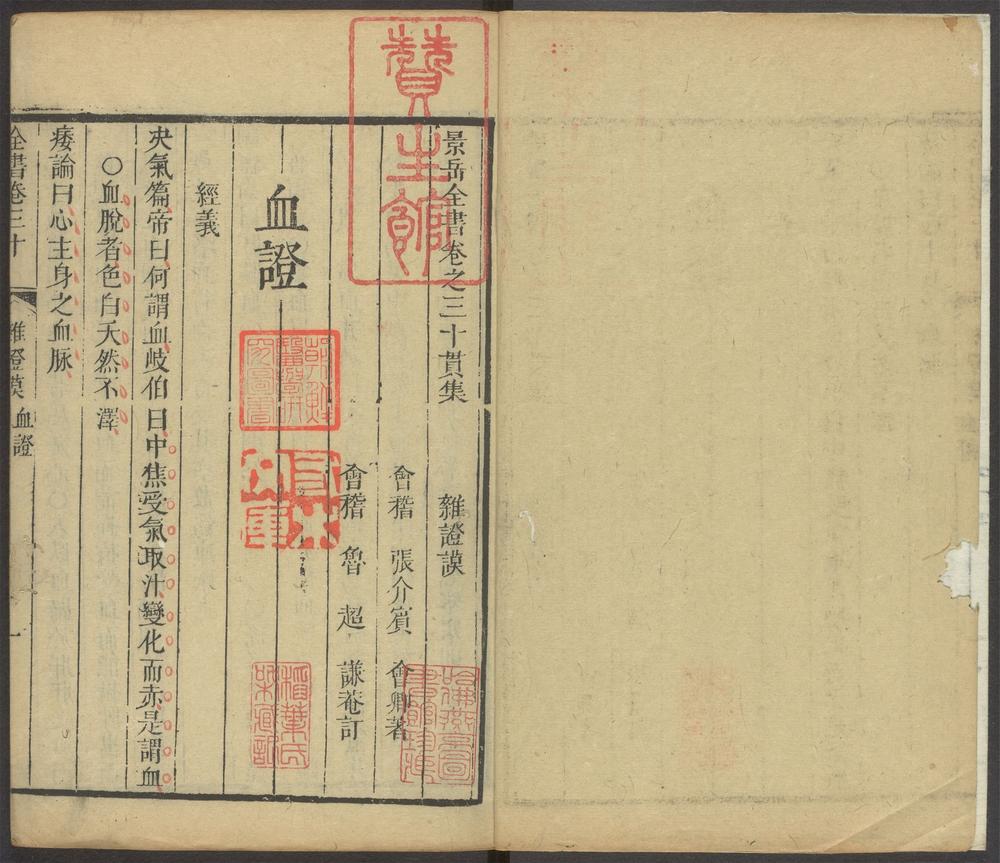 贊生館
景岳全書卷之三十貫集 雜證謨
會稽 張介賓 會卿著
會稽 魯超 謙菴訂
血證
經義
决氣篇帝曰何謂血歧伯曰中焦受氣取汁變化而赤是謂血
○血脫者色白夭然不澤
痿論曰心主身之血脉
全書卷三十 雜證謨 血證 一